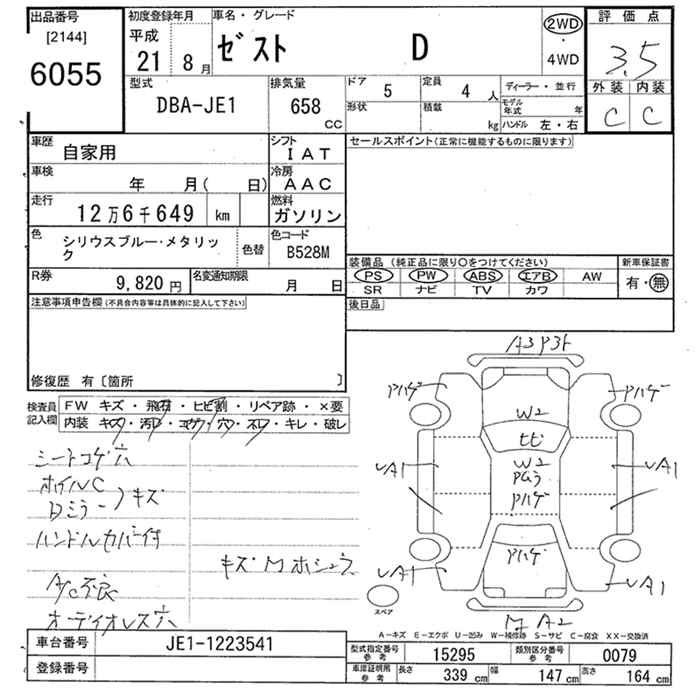 出品番号
[2144]
6055
初度登録年月
平成
21年 8月
車名・グレード
ゼスト D
2WD
・
4WD
評価点
3.5
外装 内装
C C
型式
DBA-JE1
排気量
658
CC
ドア
5
定員
4 人
形状
積載
kg
ディーラー・並行
モデル年式 年
ハンドル 左・右
車歴
自家用
シフト
IAT
車検
年 月( 日)
冷房
AAC
走行
12万6千649 km
燃料
ガソリン
色
シリウスブルー・メタリック
色替
色コード
B528M
R券
9,820 円
名変通知期限
月 日
セールスポイント(正常に機能するものに限ります)
装備品(純正品に限り〇をつけてください)
新車保証書
PS PW ABS エアB AW
SR ナビ TV カワ
有・無
後日品
注意事項申告欄(不具合内容等は具体的に記入して下さい)
修復歴 有〔箇所 〕
検査員記入欄
FW キズ・飛石・ヒビ割・リペア跡・×要
内装 キズ・汚レ・コゲ・穴・スレ・キレ・破レ
シートコゲ穴
ホイルC
Dミラー キズ
ハンドルカバー付
A/C不良
オーディオレス穴
キズ・M ホシュウ
A3 P3ト
Pハゲ
Pハゲ
W2
ヒビ
W2
Pハゲ
UA1
UA1
Pハゲ
UA1
UA1
スペア
A2
A-キズ E-エクボ U-凹み W-補修跡 S-サビ C-腐食 XX-交換済
車台番号
JE1-1223541
登録番号
型式指定番号
参考
15295
類別区分番号
参考
0079
車庫証明用
参考
長さ 339 cm
幅 147 cm
高さ 164 cm